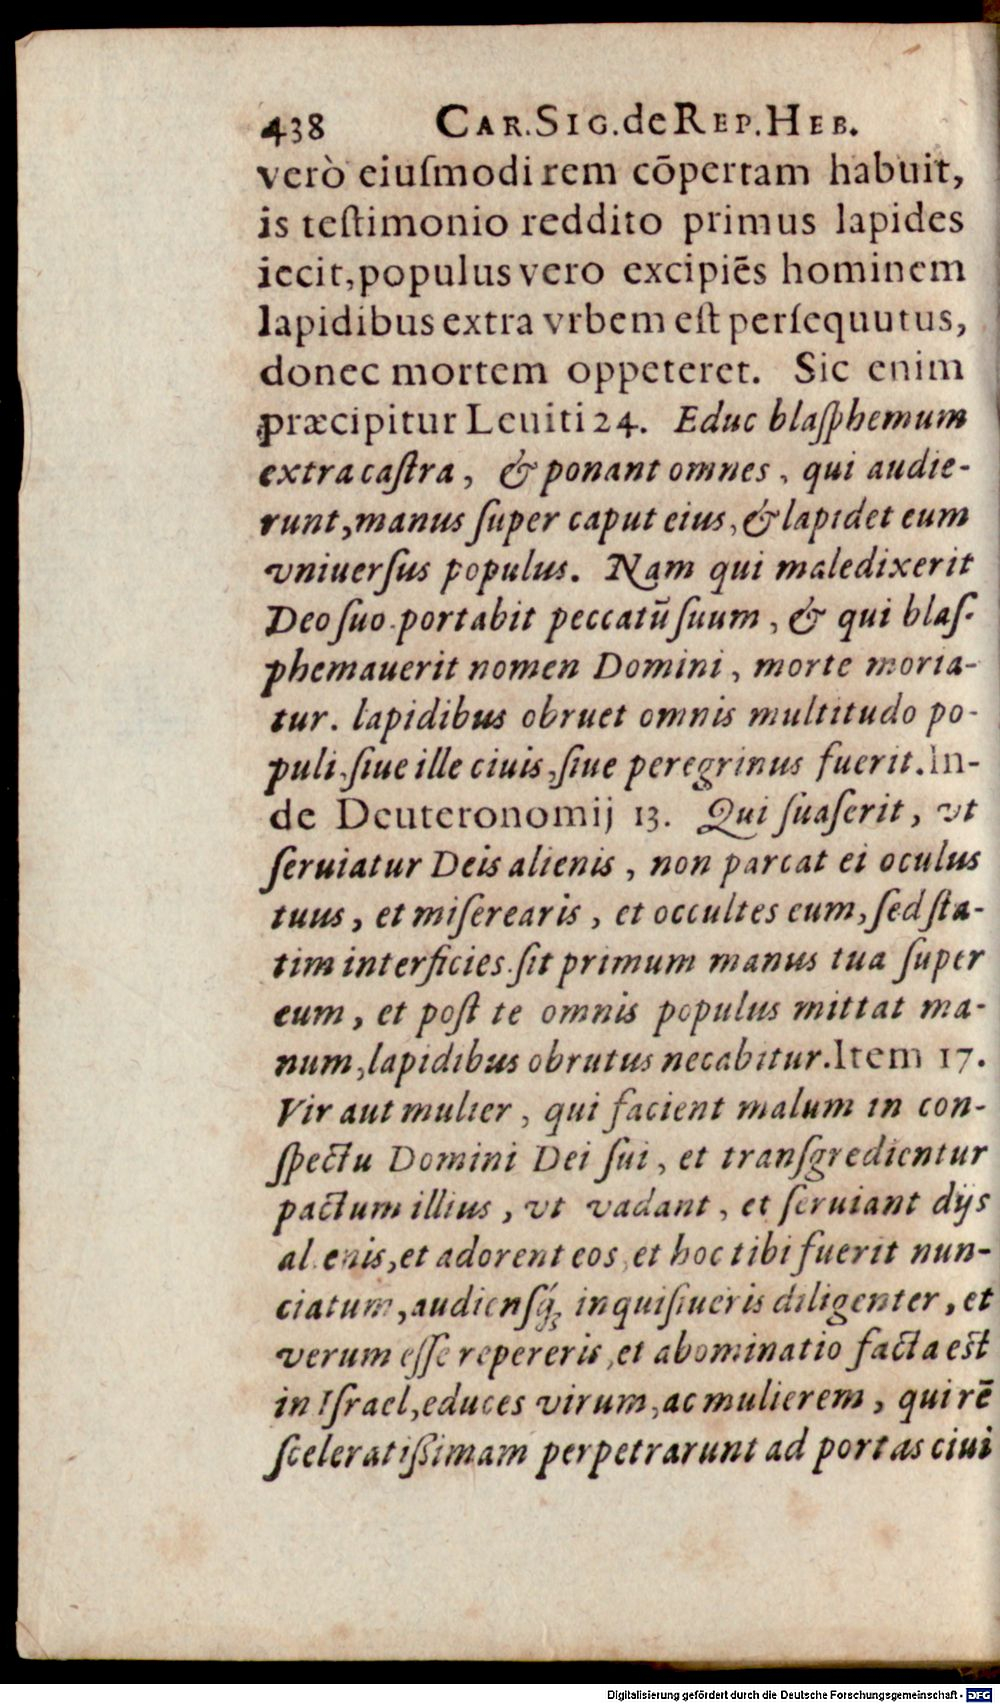 438 CAR.SIG.de REP.HEB.
verò eiuſmodi rem cōpertam habuit,
is teſtimonio reddito primus lapides
iecit, populus vero excipiēs hominem
lapidibus extra vrbem eſt perſequutus,
donec mortem oppeteret. Sic enim
præcipitur Leuiti 24. Educ blaſphemum
extra caſtra, & ponant omnes, qui audie-
runt, manus ſuper caput eius, & lapidet eum
vniuerſus populus. Nam qui maledixerit
Deo ſuo. portabit peccatū ſuum, & qui blaſ-
phemauerit nomen Domini, morte moria-
tur. lapidibus obruet omnis multitudo po-
puli, ſiue ille ciuis, ſiue peregrinus fuerit. In-
de Deuteronomij 13. Qui ſuaſerit, vt
ſeruiatur Deis alienis, non parcat ei oculus
tuus, et miſerearis, et occultes eum, ſed ſta-
tim interficies. ſit primum manus tua ſuper
eum, et poſt te omnis populus mittat ma-
num, lapidibus obrutus necabitur. Item 17.
Vir aut mulier, qui facient malum in con-
ſpectu Domini Dei ſui, et tranſgredientur
pactum illius, vt vadant, et ſeruiant dijs
alienis, et adorent eos, et hoc tibi fuerit nun-
ciatum, audienſq́ꝫ inquiſiueris diligenter, et
verum eſſe repereris, et abominatio facta eſt
in Iſrael, educes virum, ac mulierem, qui rē
ſceleratißimam perpetrarunt ad portas ciui
Digitalisierung gefördert durch die Deutsche Forschungsgemeinschaft - DFG